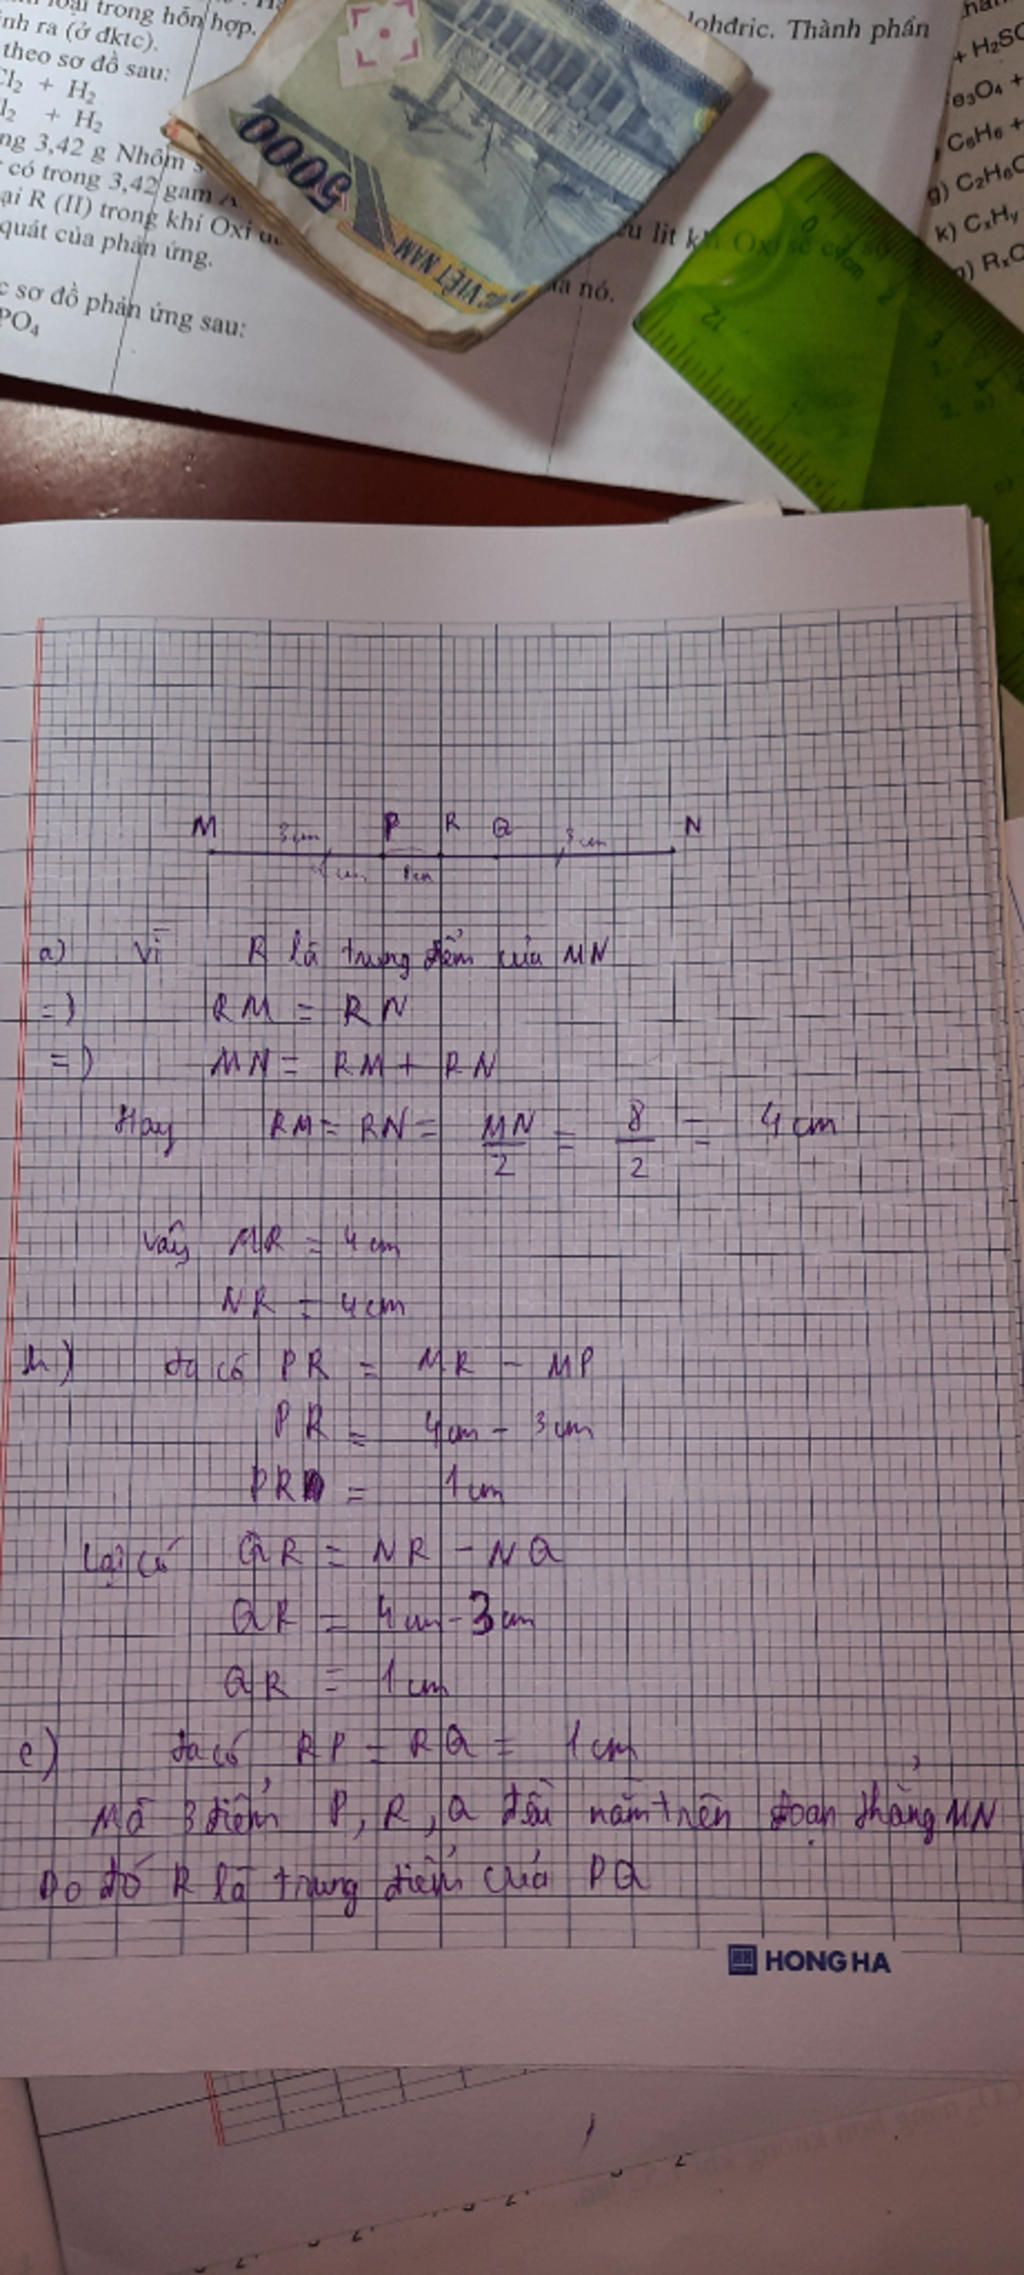 loại trong hỗn hợp.
inh ra (ở đktc).
theo sơ đồ sau:
Cl₂ + H₂
l₂ + H₂
ng 3,42 g Nhôm s
có trong 3,42 gam A
ại R (II) trong khí Oxi
quát của phản ứng.
c sơ đồ phản ứng sau:
PO₄
lohđric. Thành phần
lít kh Oxi
a nó.
50000
VIỆT NAM
+ H₂SO
e₃O₄ +
C₆H₆ +
g) C₂H₆O
k) CₓHᵧ
RₓO
0 1cm 2
3
4
12
M 3cm P R Q 3cm N
1cm
a) Vì R là trung điểm của MN
=) RM = RN
=) MN = RM + RN
Hay RM = RN = MN/2 = 8/2 = 4cm
Vậy MR = 4cm
NR = 4cm
b) ta có PR = MR - MP
PR = 4cm - 3cm
PR = 1cm
Lại có QR = NR - NQ
QR = 4cm - 3cm
QR = 1cm
c) ta có RP = RQ = 1cm
Mà 3 điểm P, R, Q đều nằm trên đoạn thẳng MN
Do đó R là trung điểm của PQ
HONG HA